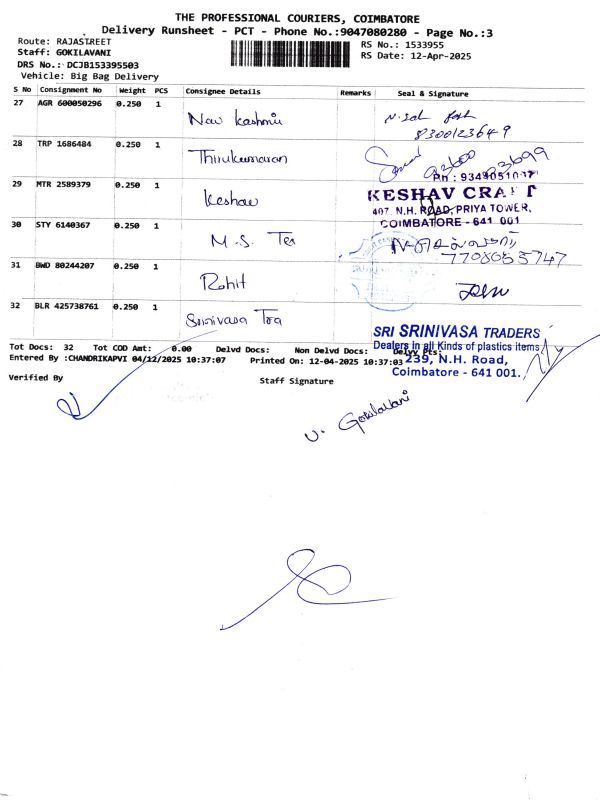 THE PROFESSIONAL COURIERS, COIMBATORE
Delivery Runsheet - PCT - Phone No.:9047080280 - Page No.:3
Route: RAJASTREET
Staff: GOKILAVANI
DRS No.: DCJB153395503
Vehicle: Big Bag Delivery
RS No.: 1533955
RS Date: 12-Apr-2025
S No Consignment No Weight PCS Consignee Details Remarks Seal & Signature
27 AGR 600050296 0.250 1 New Kashmir
8300123649
28 TRP 1686484 0.250 1 Thirukumaran
29 MTR 2589379 0.250 1 Keshav
KESHAV CRAFT
407, N.H. ROAD, PRIYA TOWER,
COIMBATORE - 641 001
30 STY 6140367 0.250 1 M.S. Tex
31 BWD 80244207 0.250 1 Rohit
32 BLR 425738761 0.250 1 Srinivasa Tra
SRI SRINIVASA TRADERS
Dealers in all Kinds of plastics items
239, N.H. Road,
Coimbatore - 641 001.
Tot Docs: 32 Tot COD Amt: 0.00 Delvd Docs: Non Delvd Docs: Delvy Pts:
Entered By :CHANDRIKAPVI 04/12/2025 10:37:07 Printed On: 12-04-2025 10:37:03
Verified By
Staff Signature
V. Gokilavani